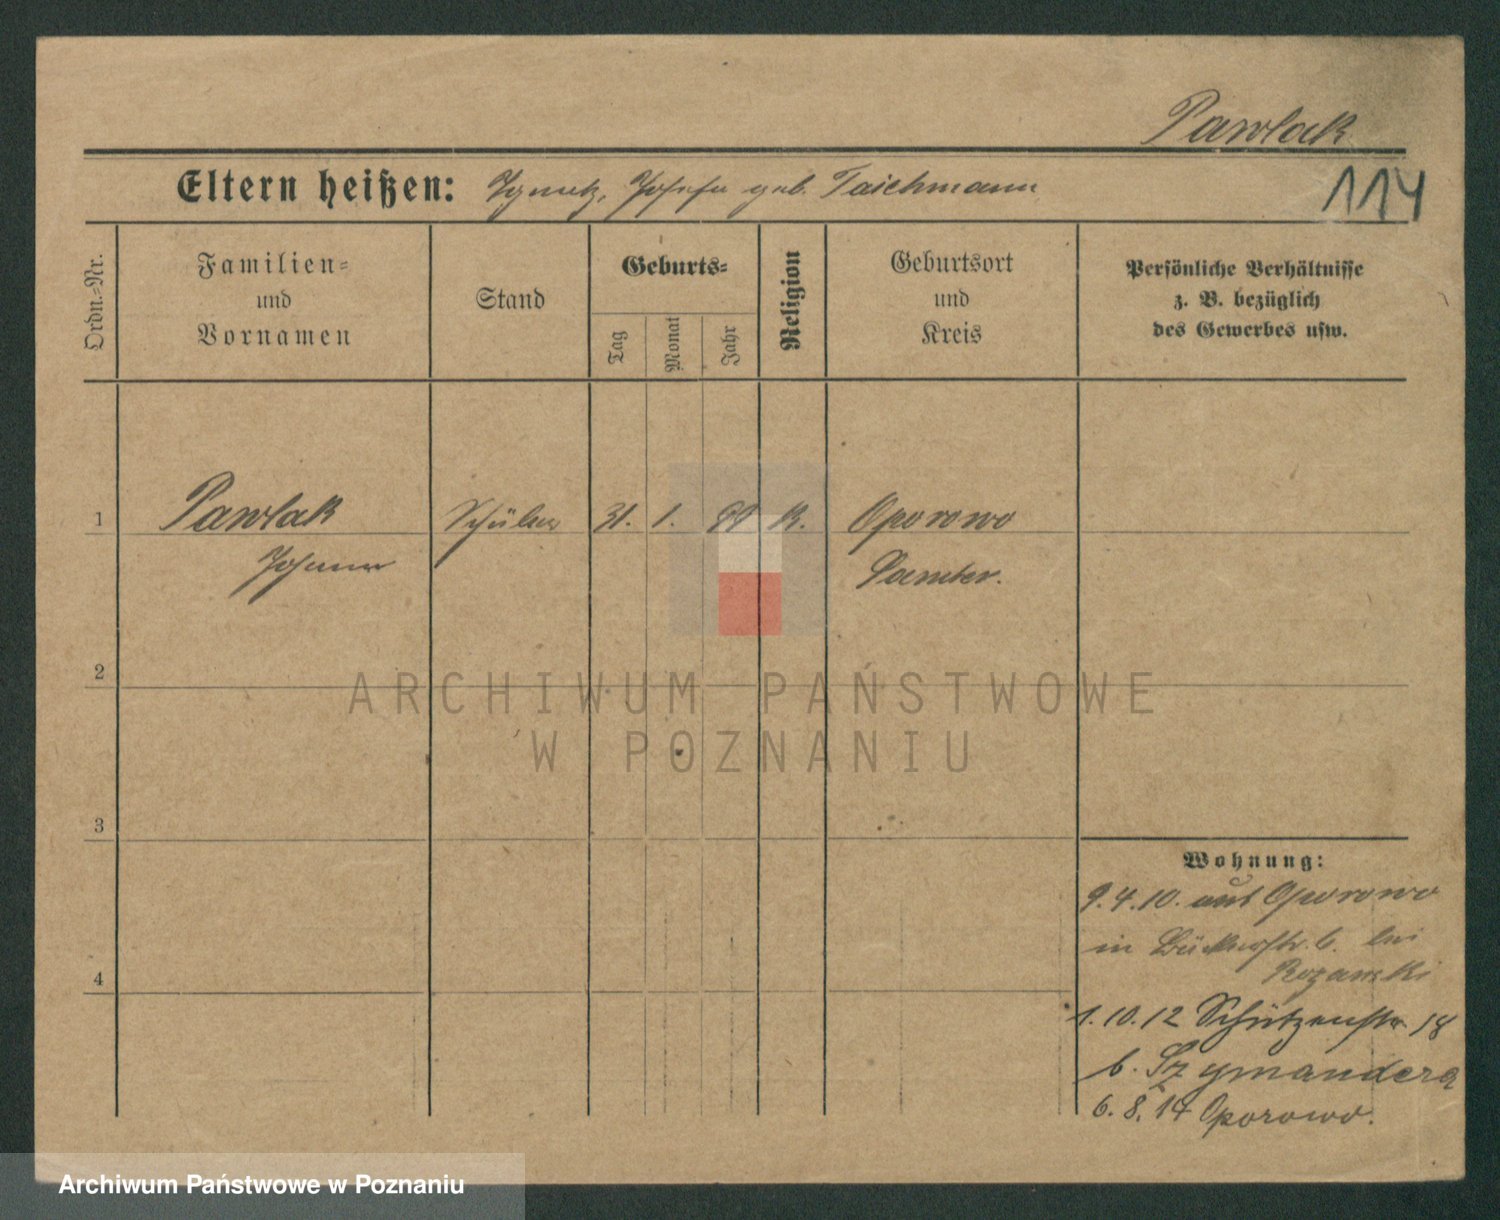 Pawlak
Eltern heißen: Ignatz, Josefa geb. Taichmann
114
Ordn.-Nr.
Familien-
und
Vornamen
Stand
Geburts-
Tag
Monat
Jahr
Religion
Geburtsort
und
Kreis
Persönliche Verhältnisse
z. B. bezüglich
des Gewerbes usw.
1 Pawlak Schüler 31. 1. K. Oporowo
Johann Samter.
2
ARCHIWUM PAŃSTWOWE
W POZNANIU
3
Wohnung:
9.4.10. aus Oporowo
in Bäckerstr. 6. bei
4
1.10.12 Schützenstr. 18
b. Szymandera
6.8.14 Oporowo.
Archiwum Państwowe w Poznaniu